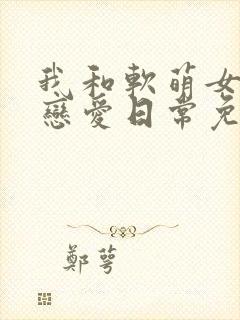 我和軟萌女
戀愛日常免
鄭萼